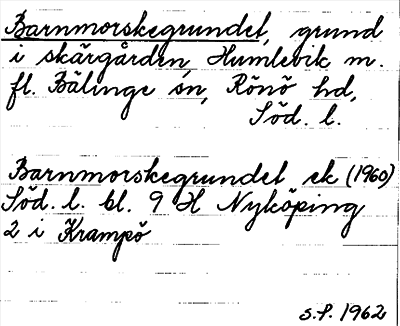 Barnmorskegrundet, grund
i skärgården, Humlevik m.
fl. Bälinge sn, Rönö hd,
Söd. l.
Barnmorskegrundet ek (1960)
Söd. l. bl. 9 H Nyköping
2 i Krampö
s.f. 1962